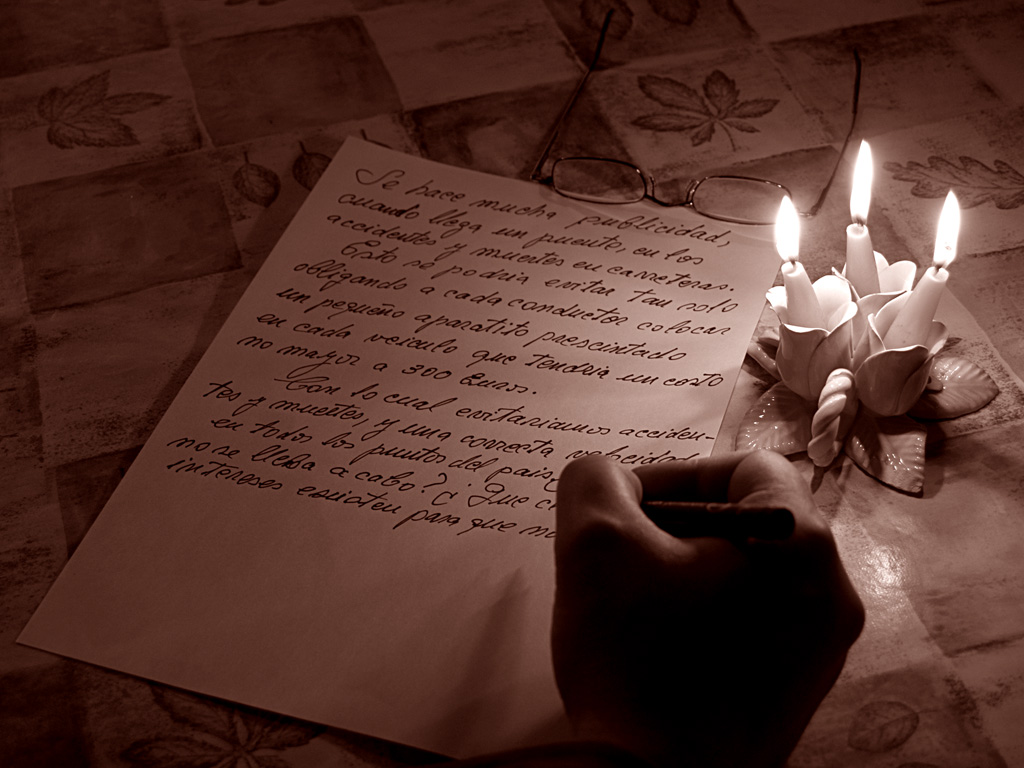 Se hace mucha publicidad,
cuando llega un puente, en los
accidentes y muertes en carreteras.
Esto se podria evitar tan solo
obligando a cada conductor colocar
un pequeño aparatito prescintado
en cada veiculo que tendria un costo
no mayor a 300 Euros.
Con lo cual evitariamos acciden-
tes y muertes, y una correcta velocidad
en todos los puntos del pais,
no se lleba a cabo? ¿Que
intereses existen para que no